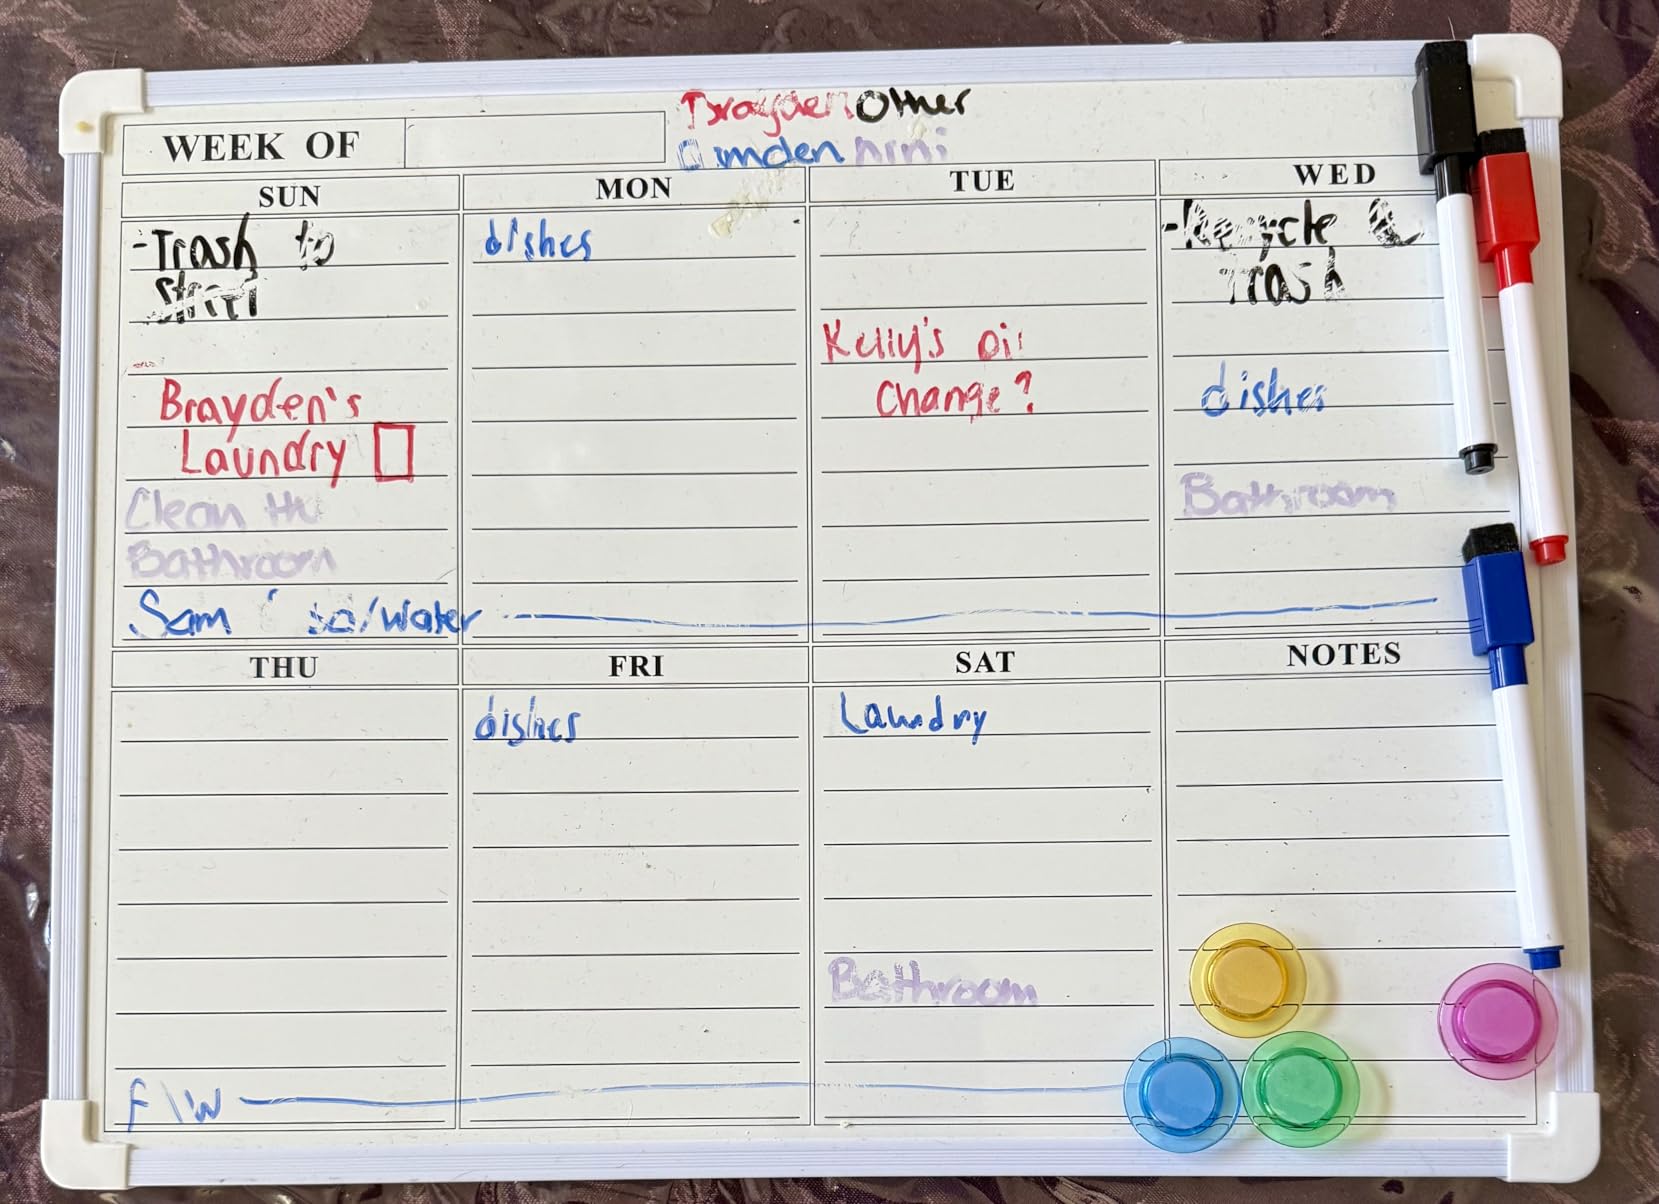 Brayden Other
WEEK OF
Camden nini
SUN MON TUE WED
-Trash to
street
Brayden's
Laundry
Clean
Bathroom
Sam /Water
dishes
Kelly's oil
Change?
-Recycle &
Trash
dishes
Bathroom
THU FRI SAT NOTES
F/W
dishes
Laundry
Bathroom